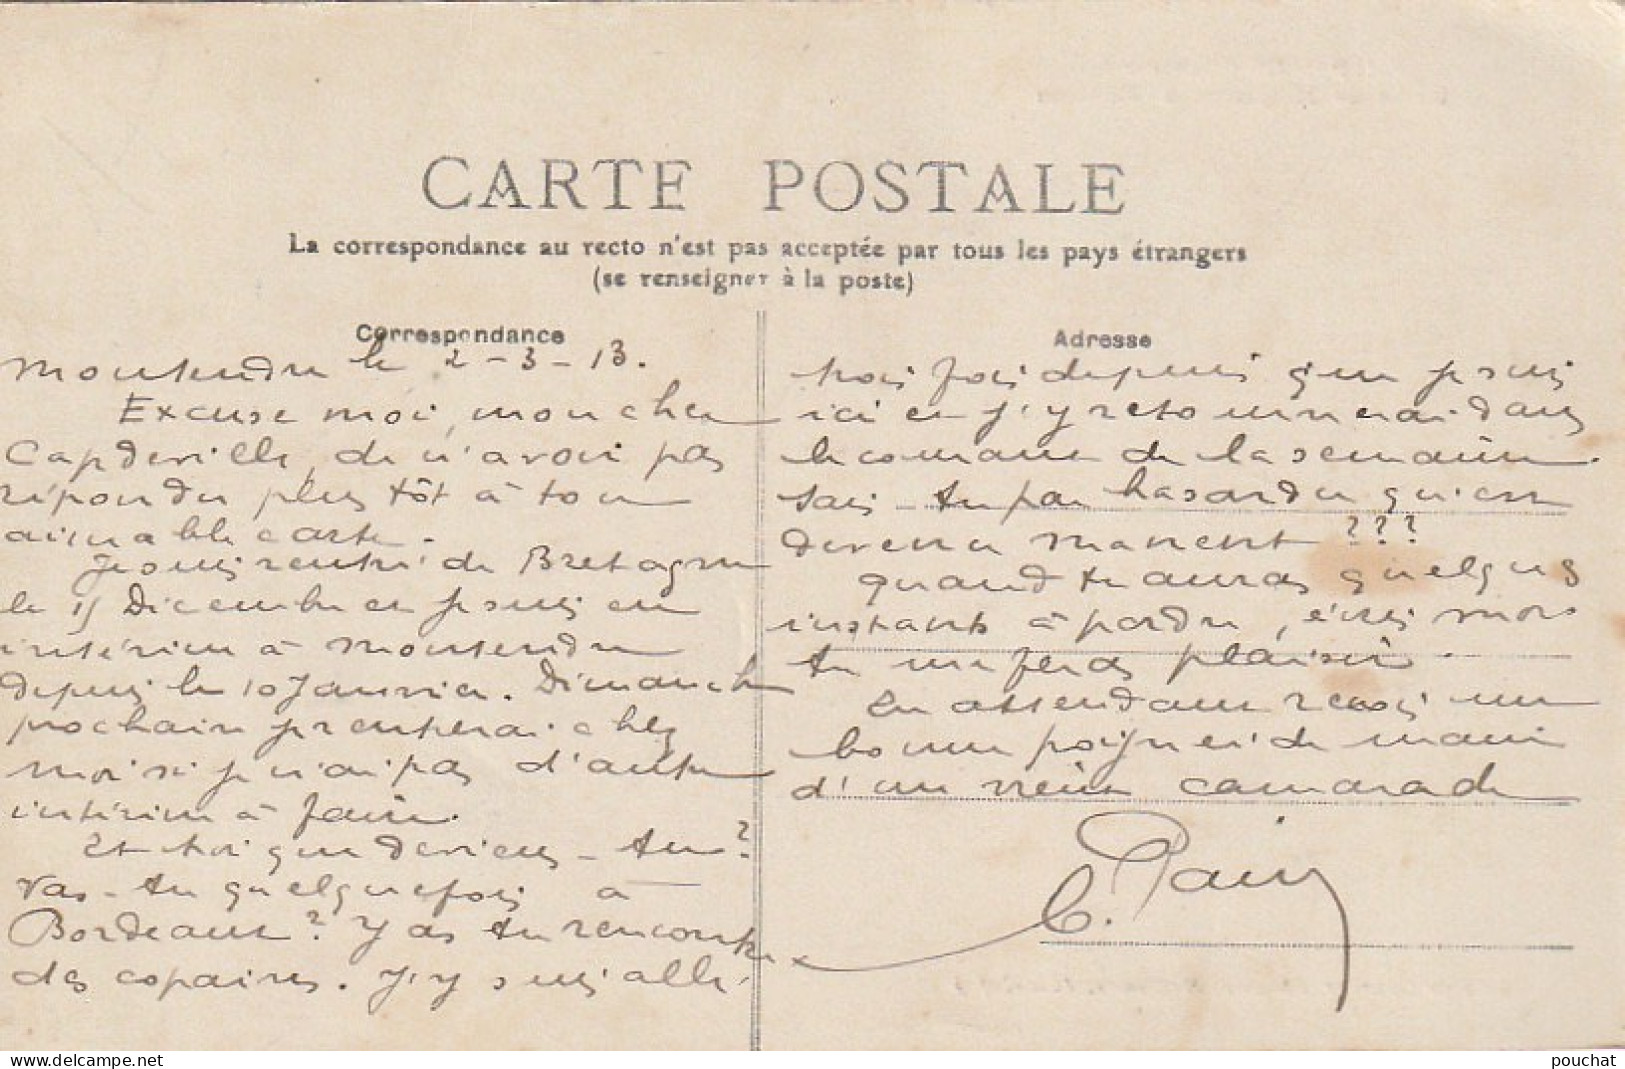 CARTE POSTALE
La correspondance au recto n'est pas acceptée par tous les pays étrangers
(se renseigner à la poste)
Correspondance
Montendre le 2-3-13.
Excuse moi, mon cher
Capdeville, de n'avoir pas
répondu plus tôt à ton
aimable carte.
Je suis rentré de Bretagne
le 15 Décembre et je suis en
intérim à Montendre
depuis le 10 Janvier. Dimanche
prochain je rentrerai chez
moi si je n'ai pas d'autre
intérim à faire.
Et toi que deviens-tu?
Vas-tu quelquefois à
Bordeaux? Y as tu rencontré
des copains. J'y suis allé
Adresse
trois fois depuis que je suis
ici et j'y retournerai dans
le courant de la semaine.
Sais-tu par hasard ce qu'est
devenu Manent ???
Quand tu auras quelques
instants à perdre, écris moi
tu me feras plaisir.
En attendant reçois une
bonne poignée de main
d'un vieux camarade
www.delcampe.net
pouchat